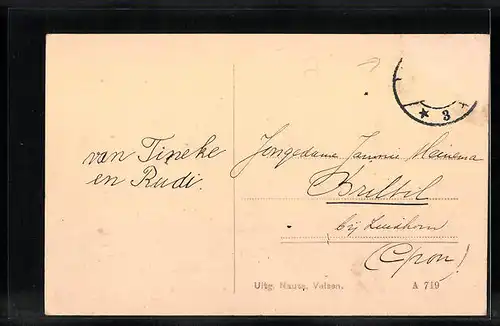 van Tineke
en Rudi.
Jongedame Jannie Meinema
Briltil
bij Zuidhorn
(Gron)
Uitg. Nauta, Velsen.
A 719
3